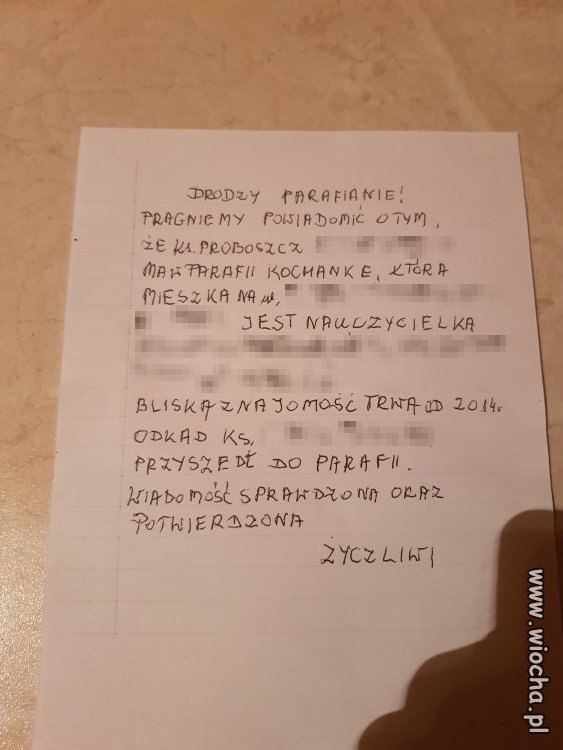 DRODZY PARAFIANIE!
PRAGNIEMY POWIADOMIĆ O TYM,
ŻE KS. PROBOSZCZ
MA W PARAFII KOCHANKE, KTÓRA
MIESZKA NA UL.
JEST NAUCZYCIELKA
BLISKA ZNAJOMOŚĆ TRWA OD 2014r
ODKĄD KS.
PRZYSZEDŁ DO PARAFII.
WIADOMOŚĆ SPRAWDZONA ORAZ
POTWIERDZONA
ŻYCZLIWI
www.wiocha.pl